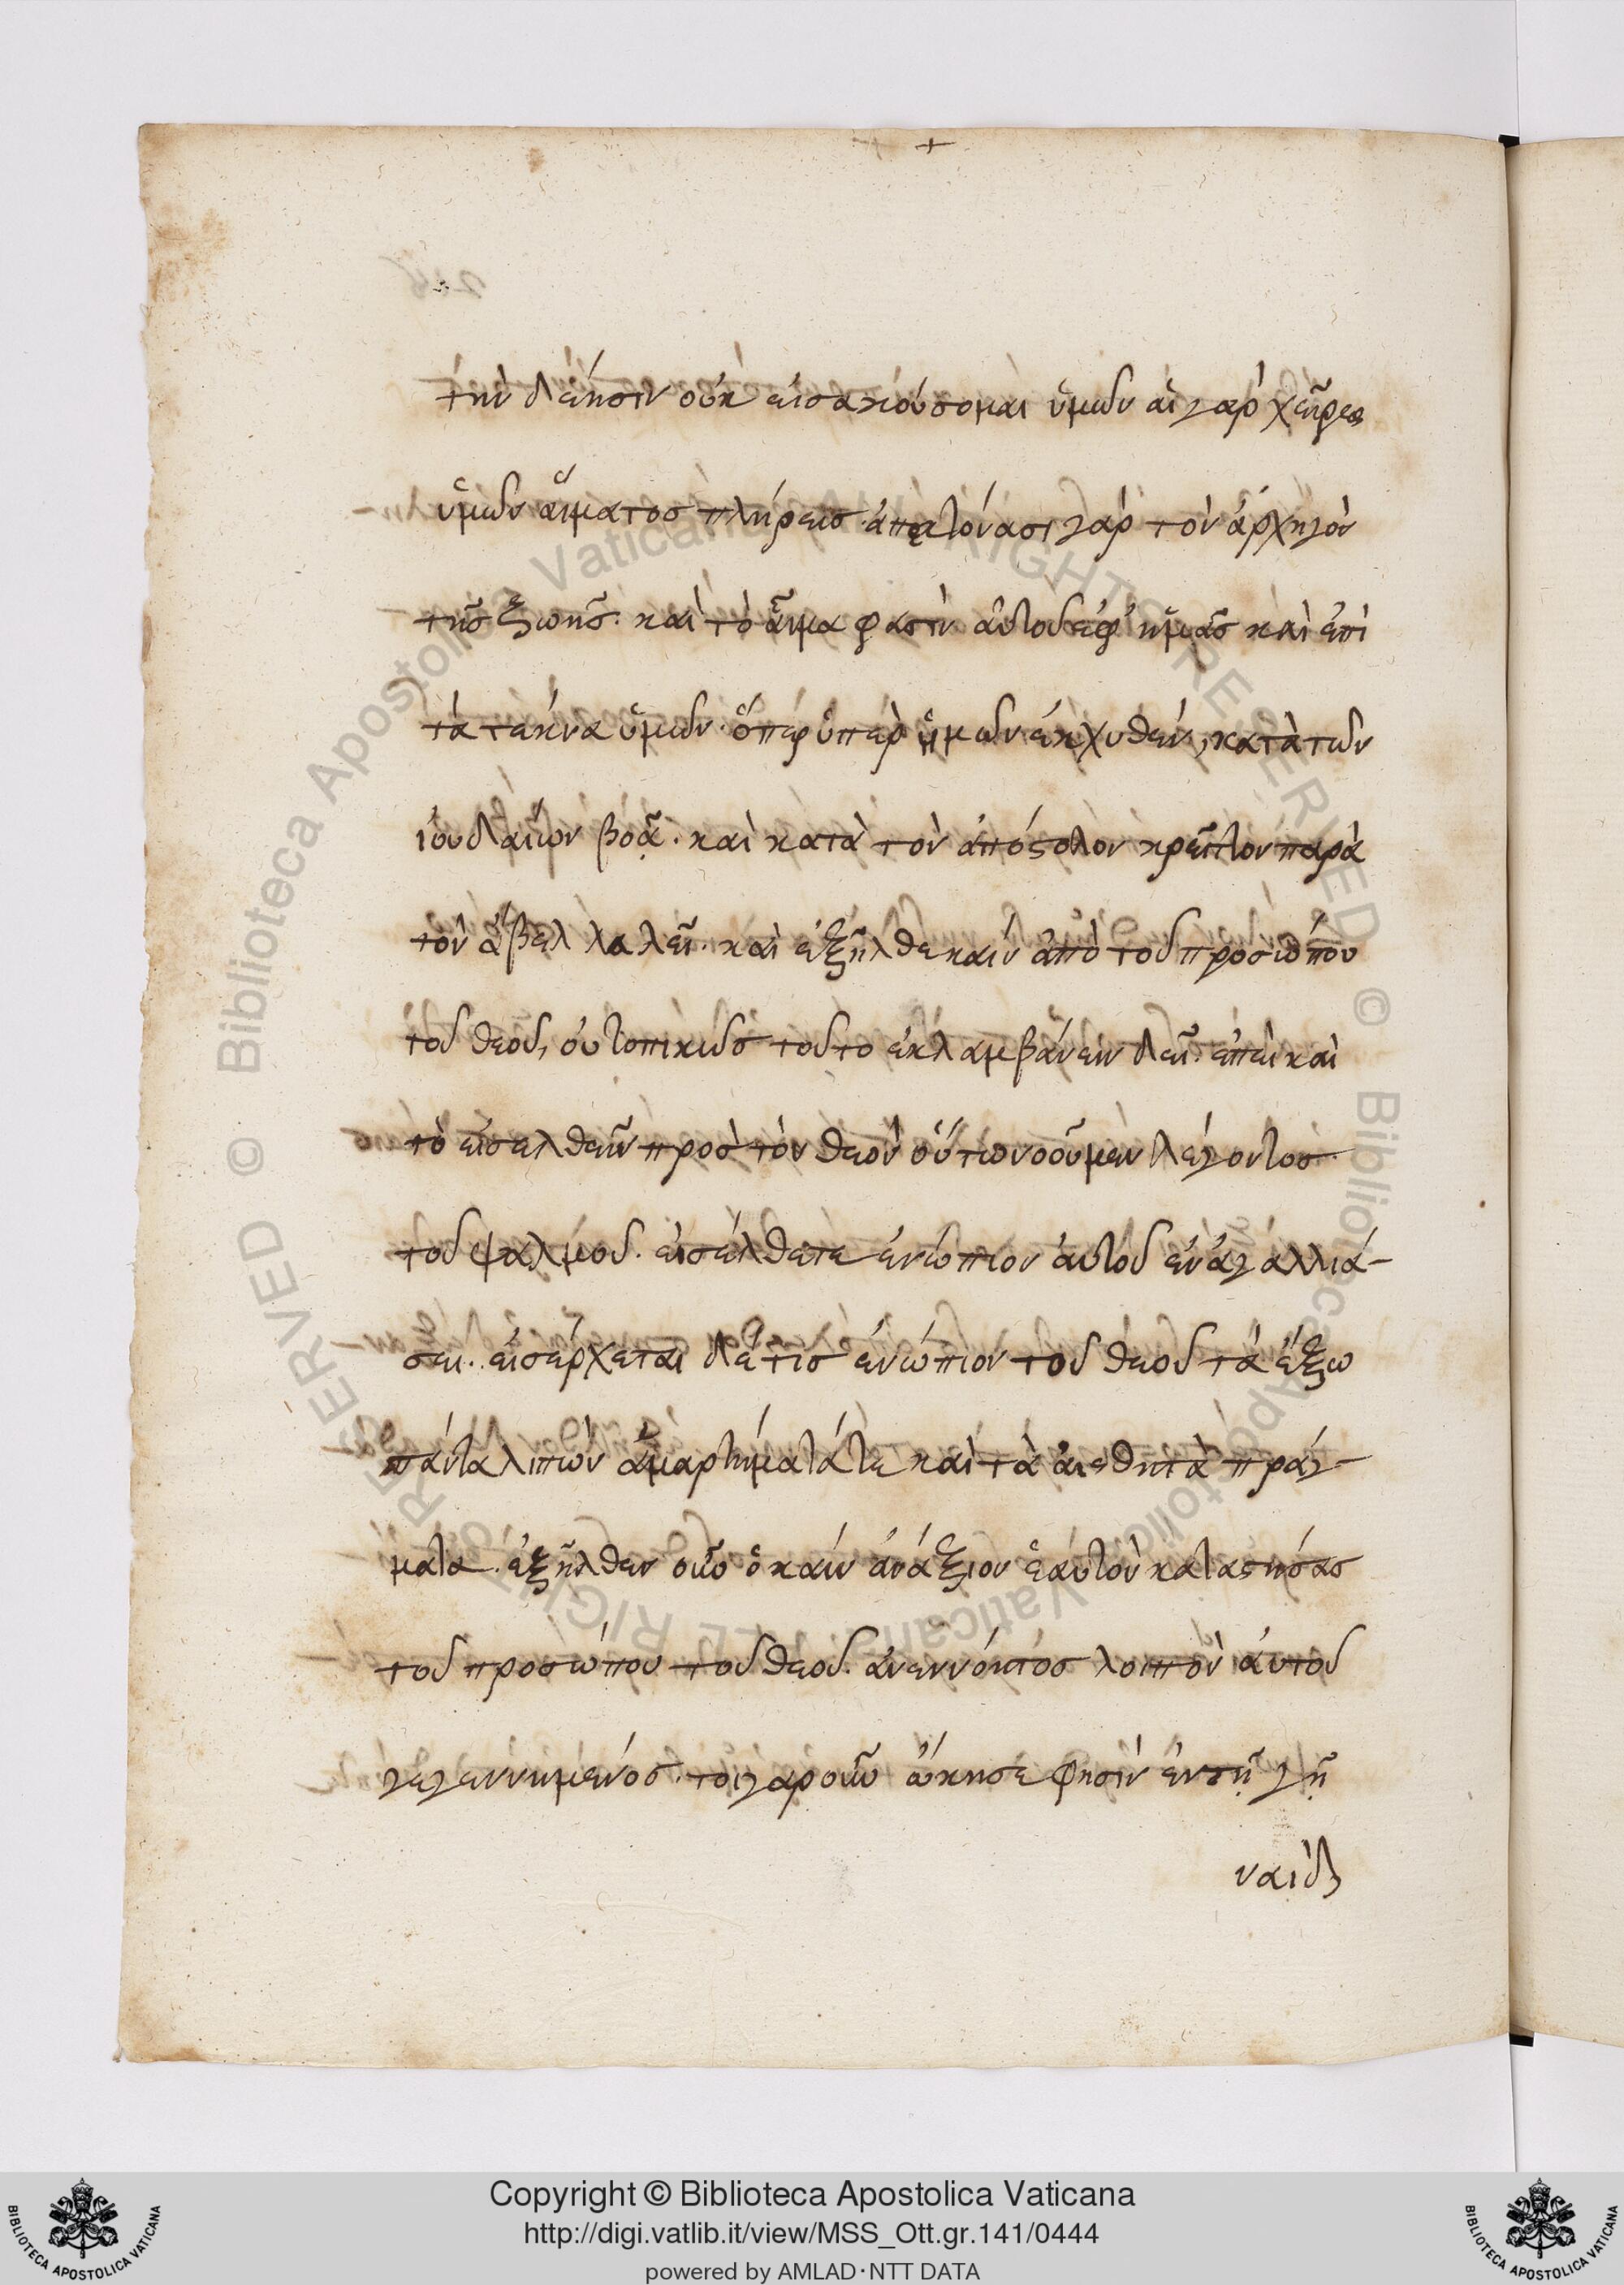 +
τὴν δέησιν οὐκ εἰσακούσομαι ὑμῶν αἱ γαρ χεῖρες
ὑμῶν αἵματος πλήρεις· ἀπεκτόνασι γὰρ τὸν ἀρχηγὸν
τῆς ζωῆς. καὶ τὸ αἷμα φασὶν αὐτοῦ ἐφ' ἡμᾶς καὶ ἐπὶ
τὰ τέκνα ὑμῶν· ὅπερ ὑπὲρ ἡμῶν ἐκχυθέν, κατὰ τῶν
ἰουδαίων βοᾷ. καὶ κατὰ τὸν ἀπόστολον κρεῖττον παρὰ
τὸν ἄβελ λαλεῖ. καὶ ἐξῆλθε καὶν ἀπὸ τοῦ προσώπου
τοῦ θεοῦ, οὐ τοπικῶς τοῦτο ἐκλαμβάνειν δεῖ. ἐπεὶ καὶ
τὸ εἰσελθεῖν πρὸς τὸν θεὸν οὕτω νοοῦμεν λέγοντος
τοῦ ψαλμοῦ. εἰσέλθετε ἐνώπιον ἀυτοῦ ἐν ἀγαλλιά-
σει. εἰσέρχεται δέ τις ἐνώπιον τοῦ θεοῦ τὰ ἔξω
πάντα λιπὼν ἁμαρτήματά τε καὶ τὰ ἀισθητὰ πράγ-
ματα. ἐξῆλθεν οὖν ὁ καὶν ἀνάξιον ἑαυτὸν καταστήσας
τοῦ προσώπου τοῦ θεοῦ. ἀνεννόητος λοιπὸν ἀυτοῦ
γεγεννημένος. τοιγαροῦν ὤκησε φησὶν ἐν τῇ γῇ
ναὶδ
Copyright © Biblioteca Apostolica Vaticana
http://digi.vatlib.it/view/MSS_Ott.gr.141/0444
powered by AMLAD·NTT DATA